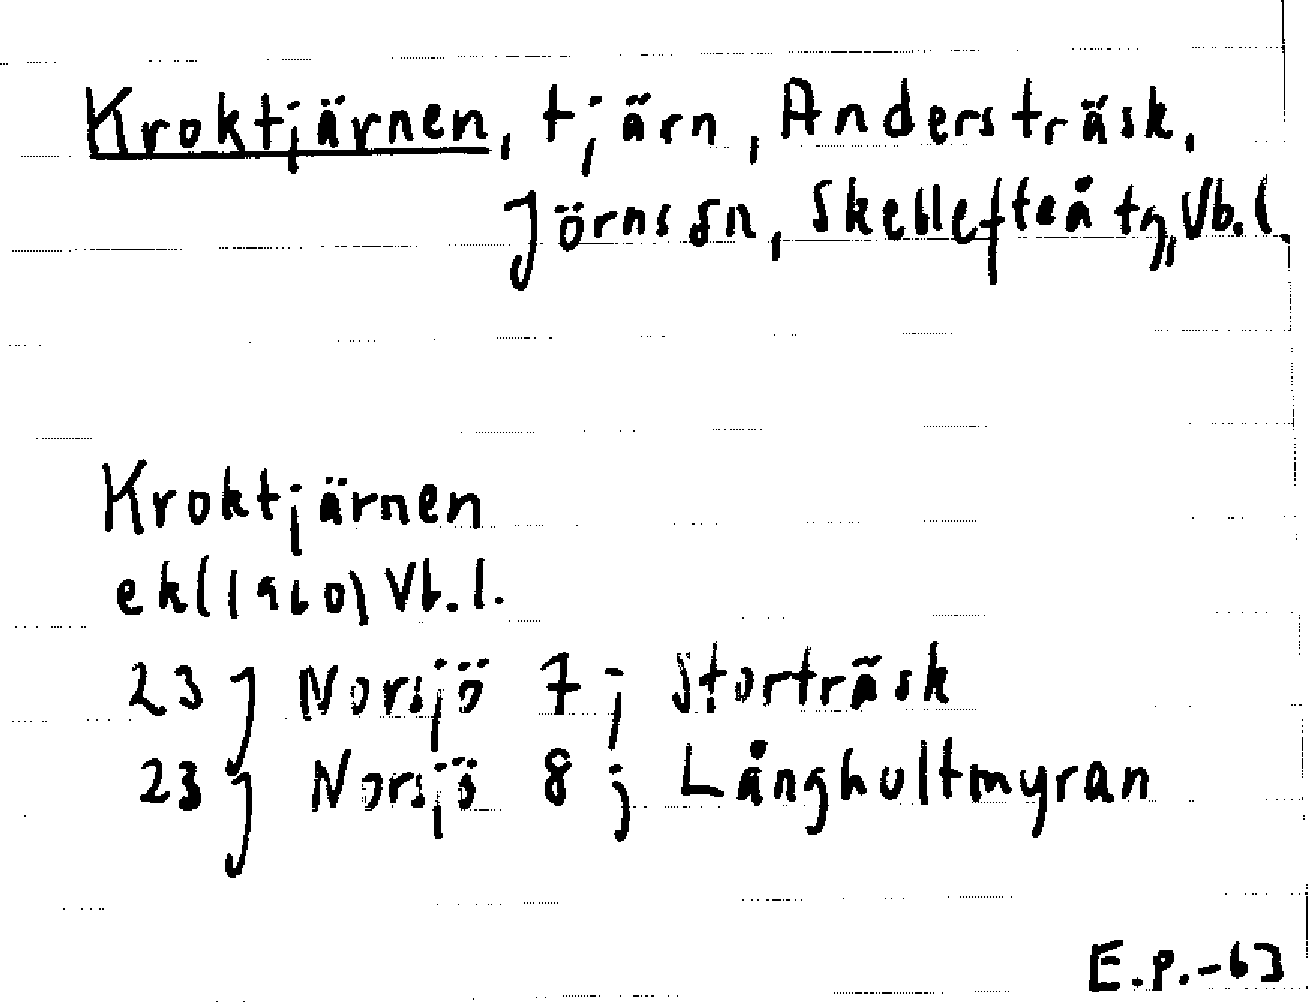 Kroktjärnen, tjärn, Andersträsk,
Jörns sn, Skellefteå tg, Vb.l.
Kroktjärnen
ek(1960) Vb.l.
23 J Norsjö 7 j Storträsk
23 J Norsjö 8 j Långhultmyran
E.P.-63